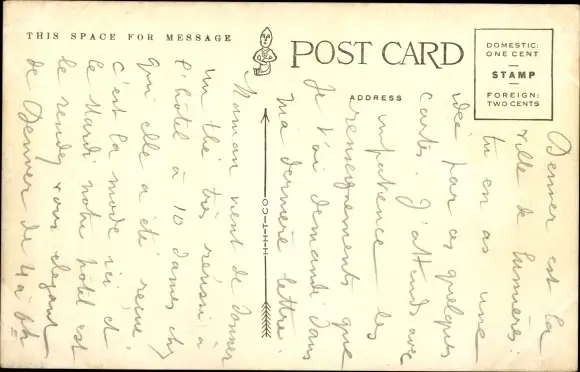 THIS SPACE FOR MESSAGE
POST CARD
ADDRESS
DOMESTIC:
ONE CENT
STAMP
FOREIGN:
TWO CENTS
Denver est la
ville de lumières.
tu en as une
idée par ces quelques
cartes. J'attends avec
impatience les
renseignements que
Je t'ai demandé dans
ma dernière lettre.
Maman vient de donner
un thé très réussi à
l'hôtel à 10 dames chez
qui elle a été reçue.
c'est la mode ici et
le Mardi notre hôtel est
le rendez vous élégant
de Denver de 4 à 6h